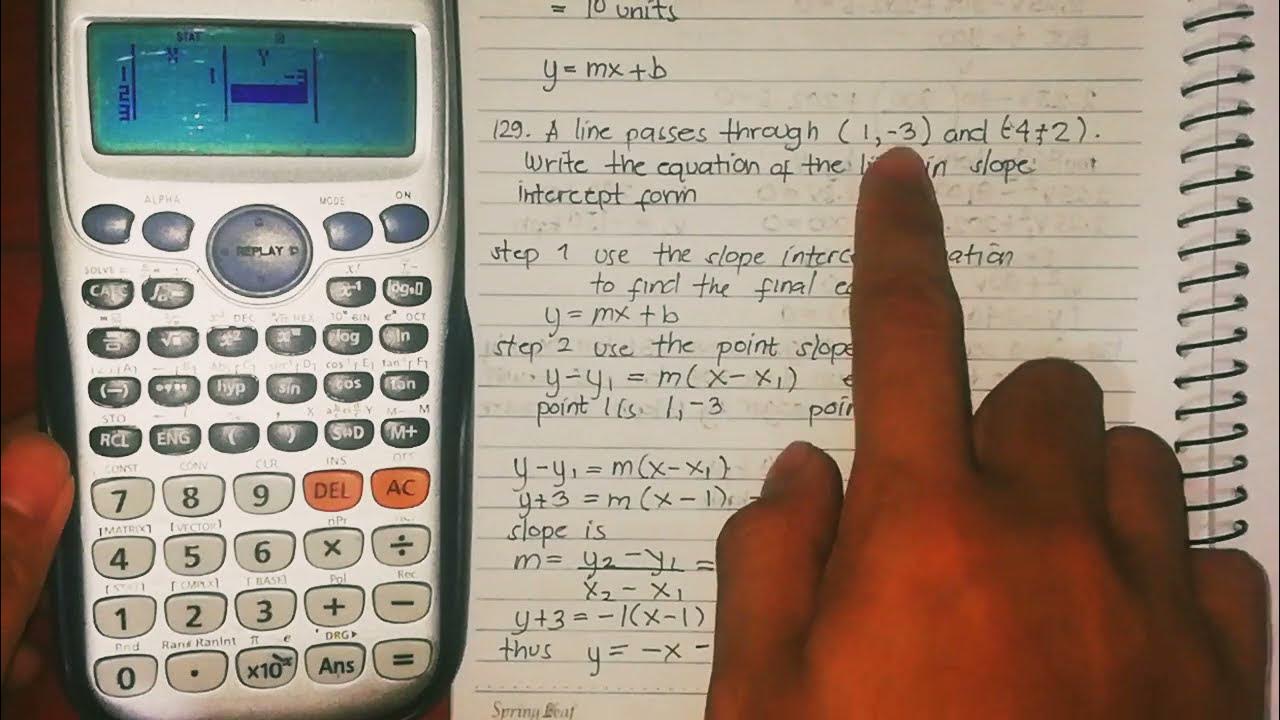 STAT
X Y
1 1 -3
2
3
ALPHA MODE ON
REPLAY
SOLVE = x!
CALC x⁻¹ log
DEC HEX 10ˣ BIN eˣ OCT
x² log ln
cos⁻¹ E
(−) hyp sin cos tan
STO M− M
RCL ENG ( ) S⇔D M+
CONST CONV CLR INS OFF
7 8 9 DEL AC
[MATRIX] [VECTOR] nPr
4 5 6 × ÷
[STAT] [CMPLX] [BASE] Pol Rec
1 2 3 + −
Rnd Ran# RanInt π e DRG▸
0 . ×10ˣ Ans =
= 10 units
y = mx + b
129. A line passes through (1,-3) and (-4,+2).
Write the equation of the in slope
intercept form
step 1 use the slope
to find the final
y = mx + b
step 2 use the point slope
y - y₁ = m(x - x₁)
point 1 is 1, -3
y - y₁ = m(x - x₁)
y + 3 = m(x - 1)
slope is
m = y₂ - y₁ =
x₂ - x₁
y + 3 = -1(x - 1)
thus y = -x -
Spring Leaf